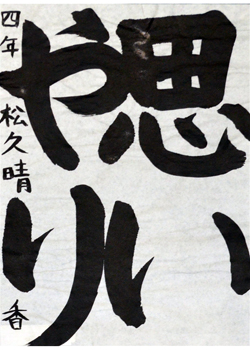 思い
やり
四年 松久晴香